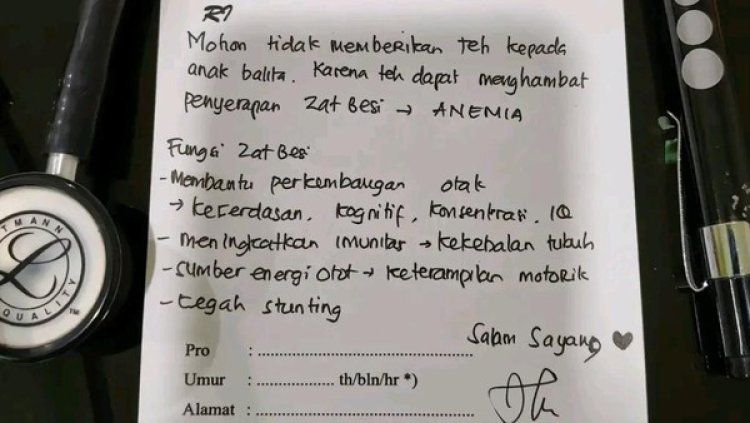 R/
Mohon tidak memberikan teh kepada
anak balita. Karena teh dapat menghambat
penyerapan zat Besi → ANEMIA
Fungsi Zat Besi
- Membantu perkembangan otak
→ kecerdasan, kognitif, konsentrasi, IQ
- meningkatkan imunitas → kekebalan tubuh
- sumber energi otot → keterampilan motorik
- cegah stunting
Salam Sayang ♥
Pro : ........................................................
Umur : .................... th/bln/hr *)
Alamat : ........................................................
TMANN
L
QUALITY